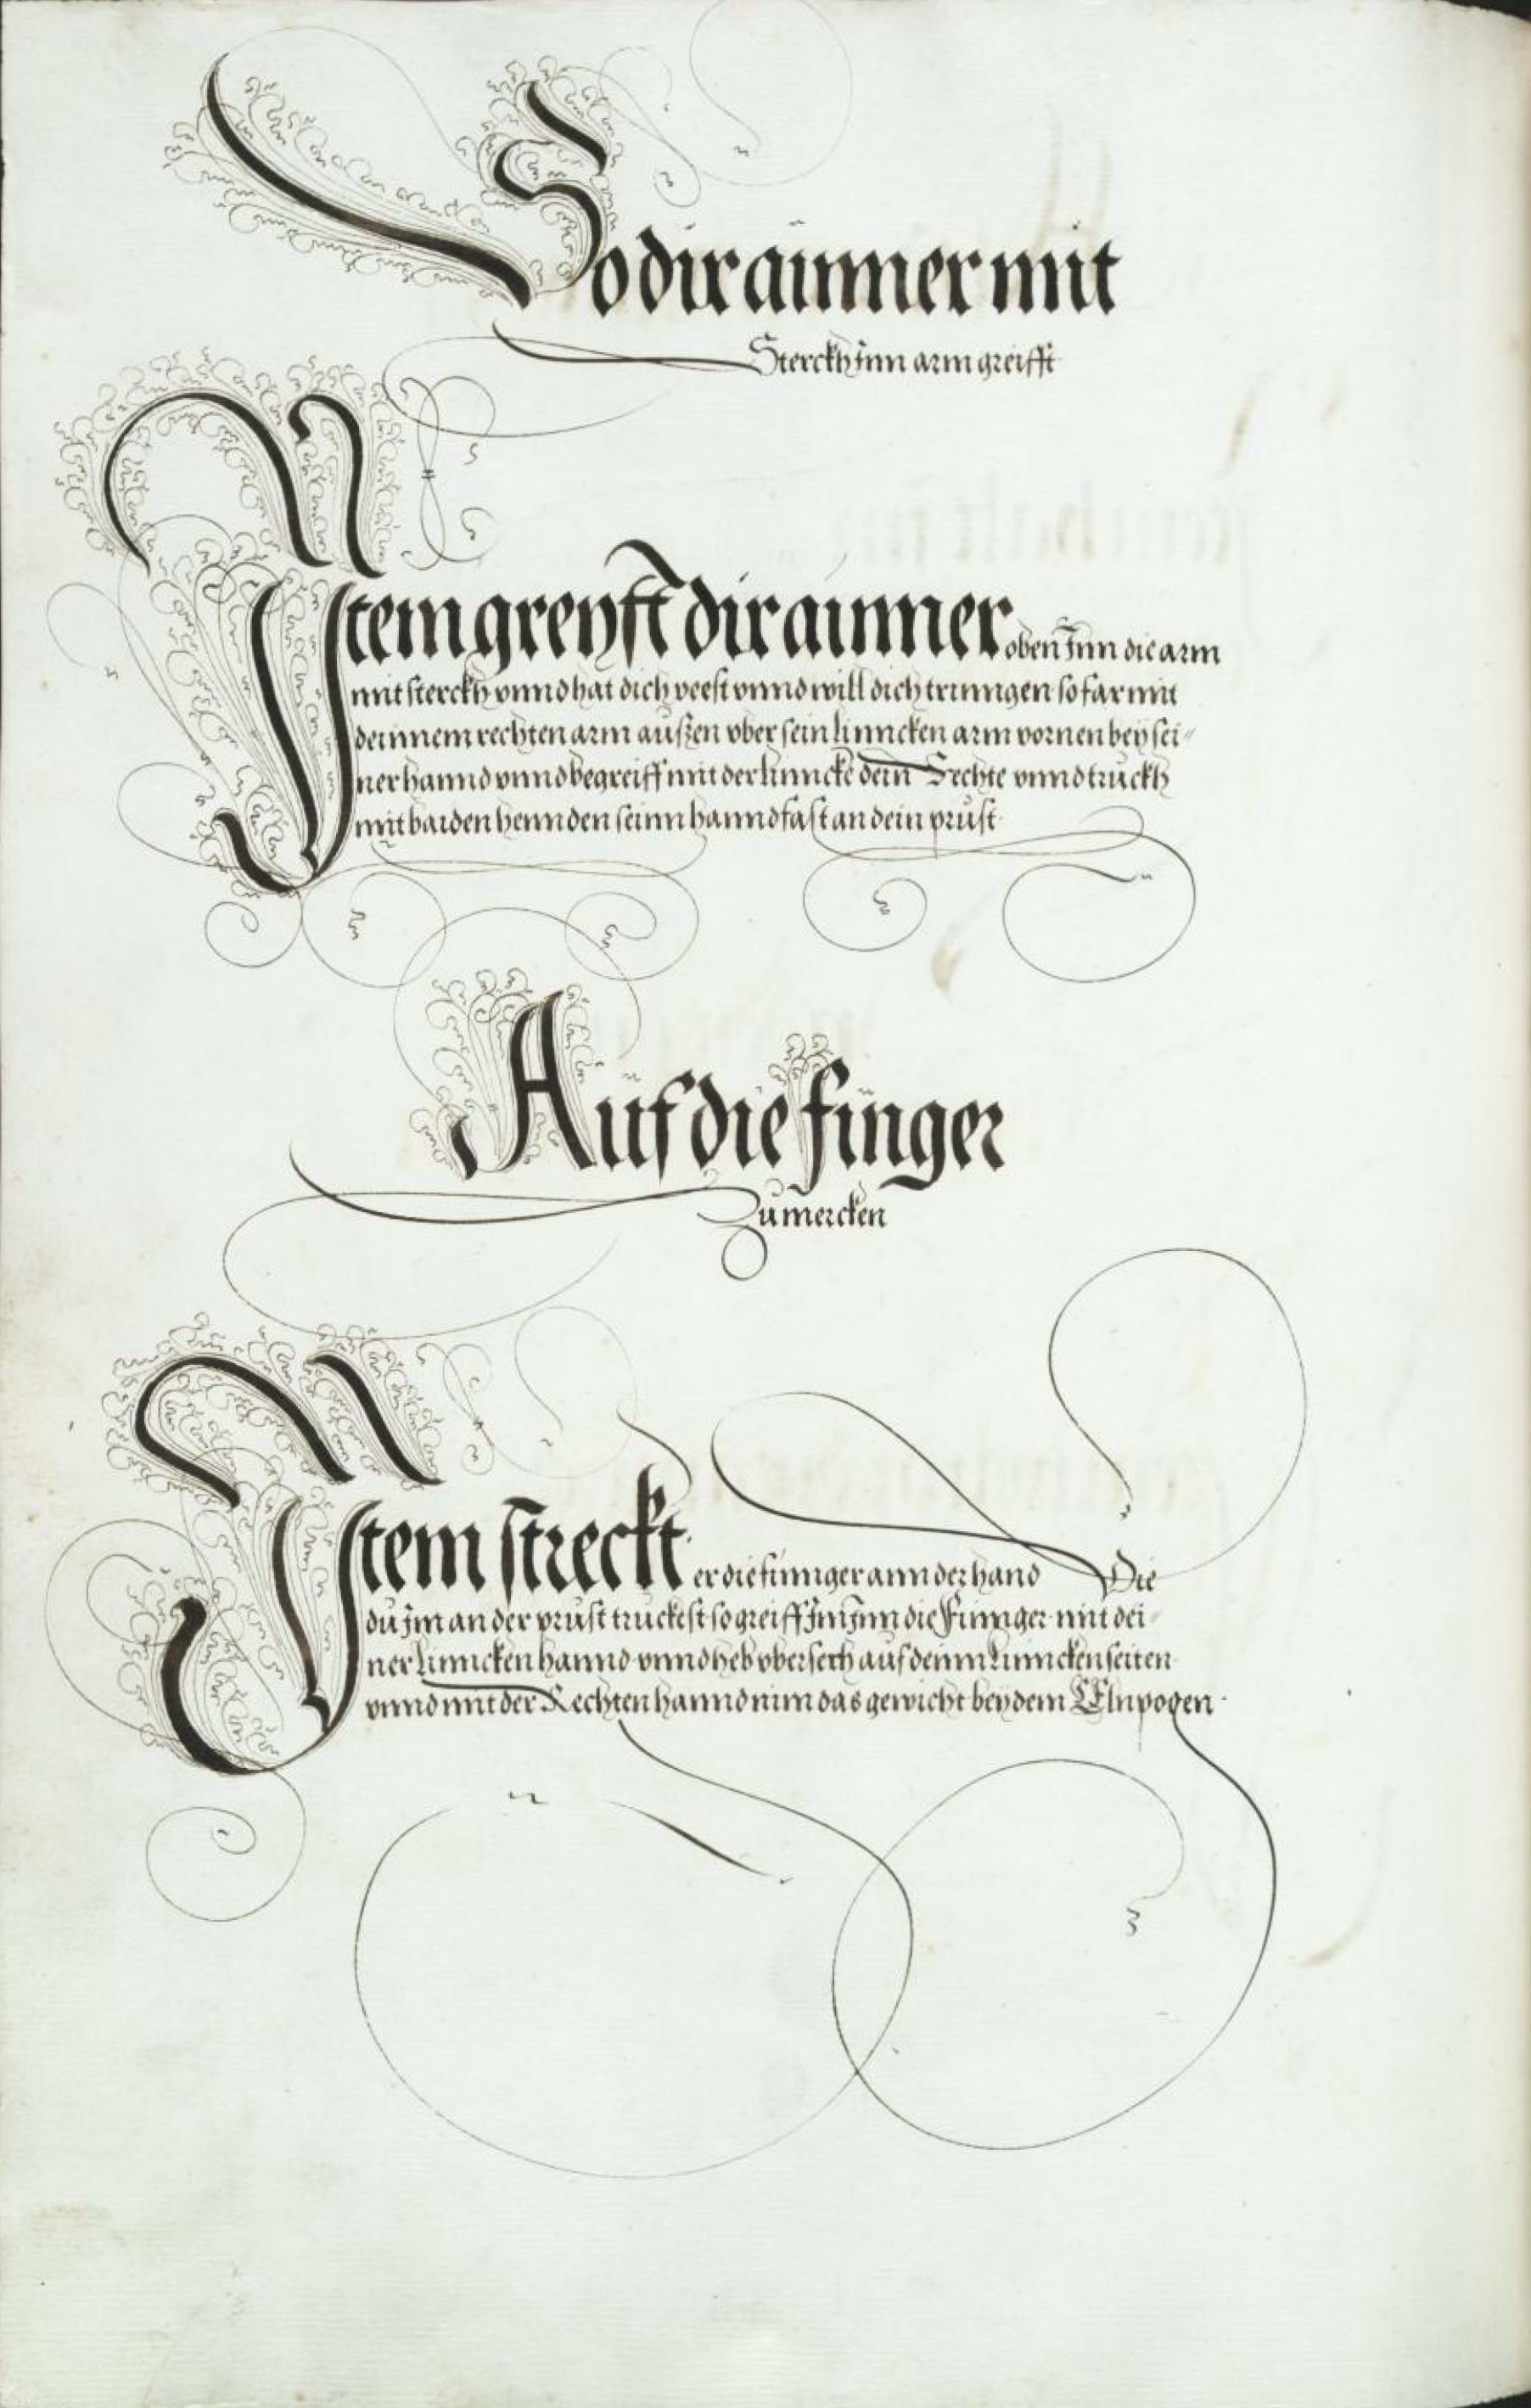 So dir ainner mit
Sterckh Inn arm greifft
Item greyft dir ainner oben Inn die arm
mit sterckh vnnd hat dich veest vnnd will dich trinngen so far mit
deinnem rechten arm außen vber sein linncken arm vornen bey sei-
ner hannd vnnd begreiff mit der linncke dein Rechte vnnd truckh
mit baiden hennden seinn hannd fast an dein prust
Auf die finger
Zu mercken
Item streckt er die finnger ann der hand Die
du Jm an der prust truckest so greiff Jm Inn die Finnger mit dei-
ner Linncken hannd vnnd heb vbersech auf deinn Linncken seiten
vnnd mit der Rechten hannd nim das gewicht bey dem Elnpogen